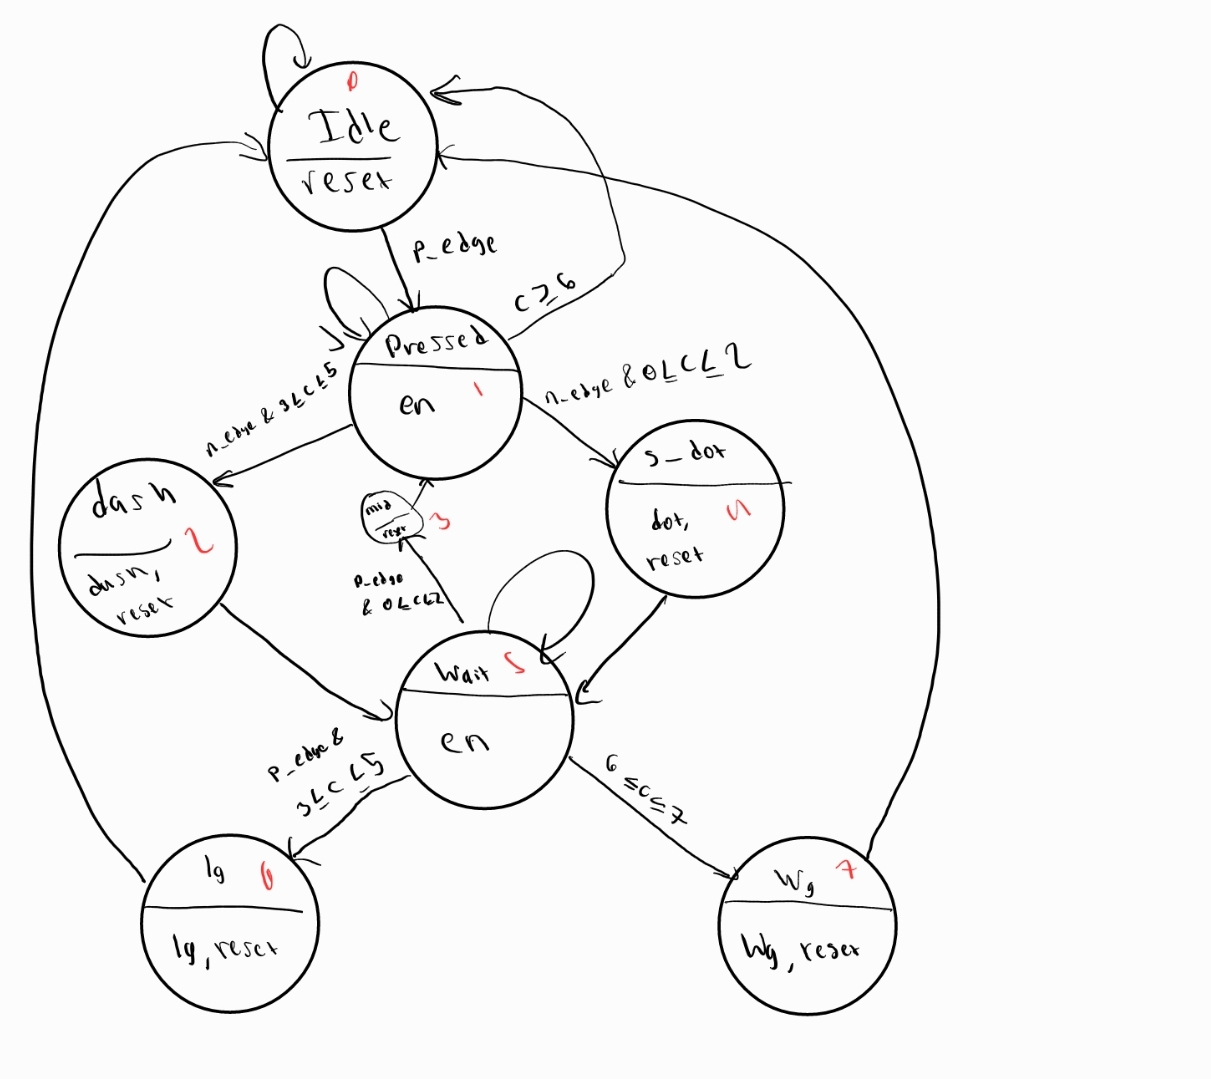 0
Idle
reset
p_edge
c ≥ 6
Pressed
en 1
n_edge & 3 ≤ c ≤ 5
n_edge & 0 ≤ c ≤ 2
dash
2
dash,
reset
mid
reset
3
s_dot
dot, 4
reset
p_edge
& 0 ≤ c ≤ 2
Wait 5
en
p_edge &
3 ≤ c ≤ 5
6 ≤ c ≤ 7
lg 6
lg, reset
Wg 7
Wg, reset